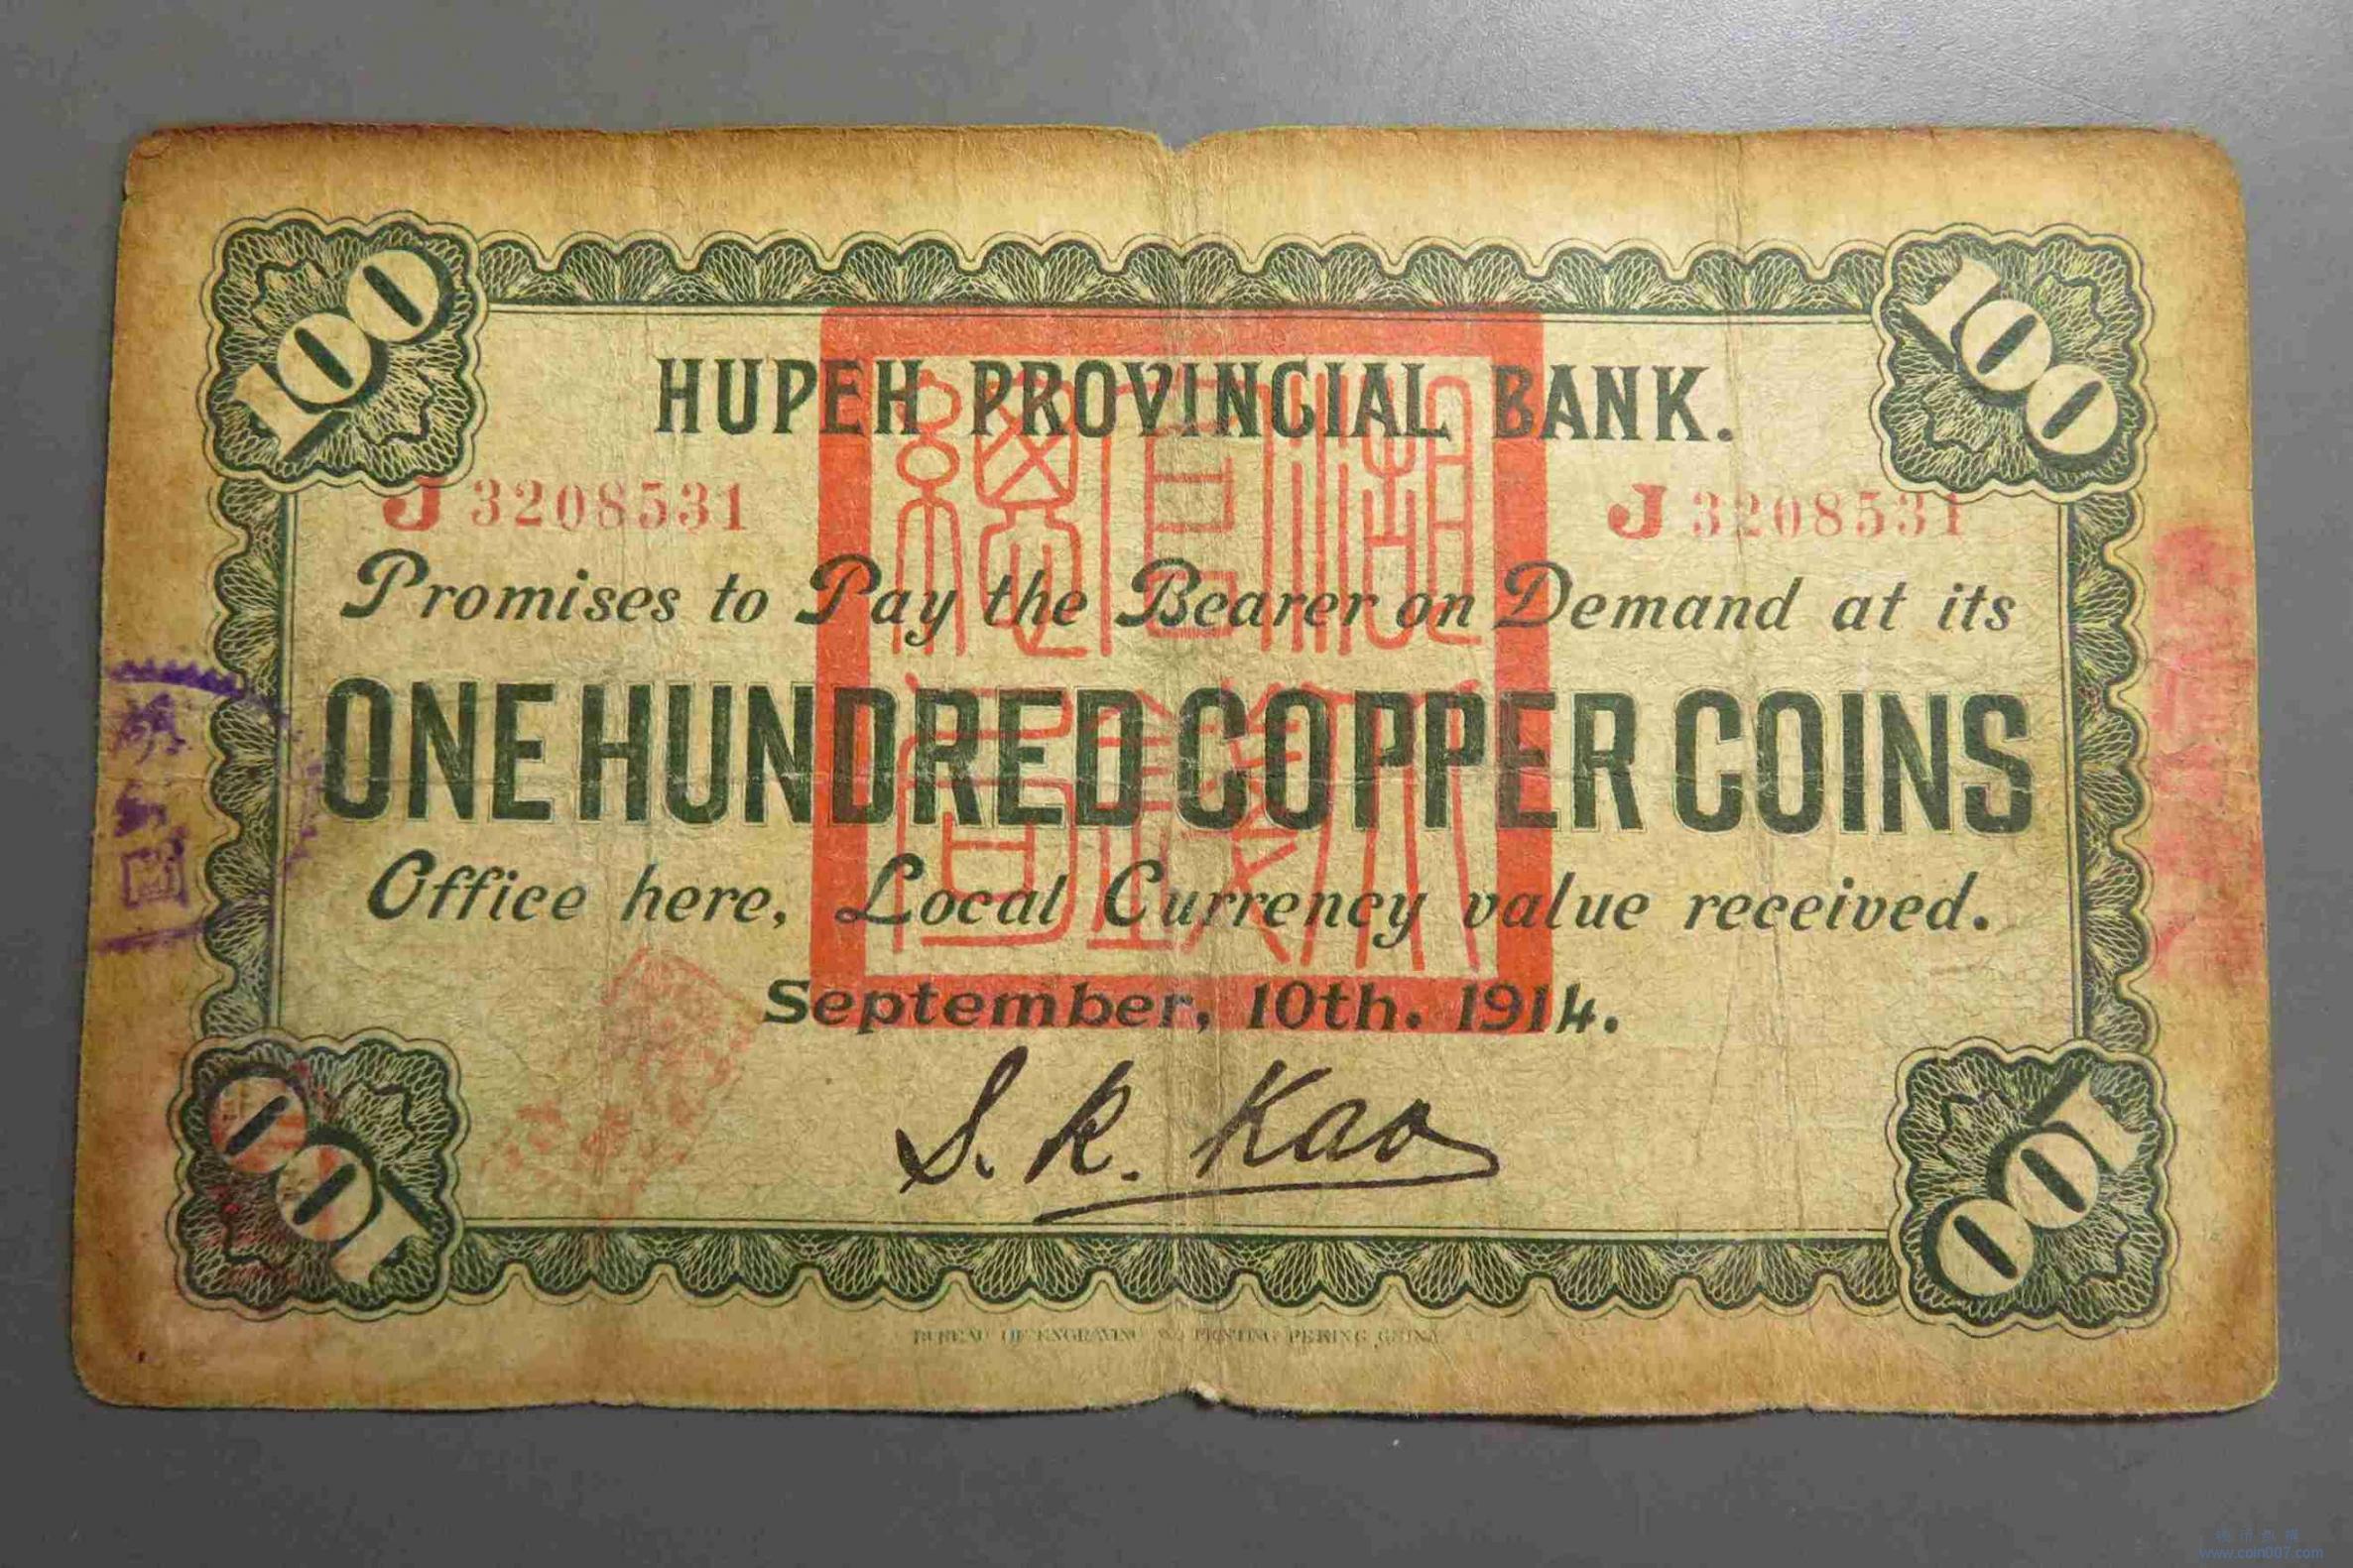 100
100
HUPEH PROVINCIAL BANK.
J 3208531
J 3208531
Promises to Pay the Bearer on Demand at its
ONE HUNDRED COPPER COINS
Office here, Local Currency value received.
September, 10th. 1914.
S. R. Kao
100
100
BUREAU OF ENGRAVING & PRINTING PEKING CHINA
www.coin007.com